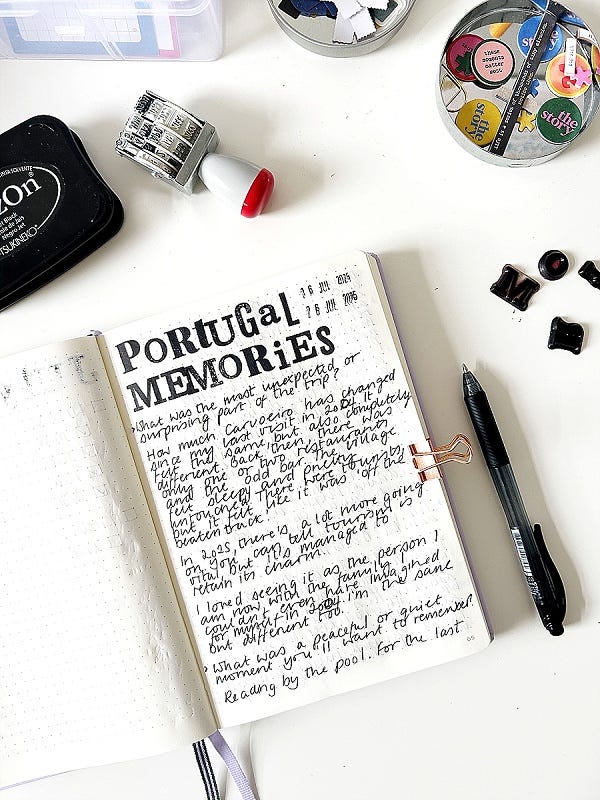 PORTUGAL
MEMORIES
16 JUL 2025
26 JUL 2025
What was the most unexpected or
surprising part of the trip?
How much Carvoeiro has changed
since my last visit in 2004. It
felt the same, but also completely
different. Back then, there was
only one or two restaurants
and the odd bar. The village
felt sleepy and pretty
untouched. There were tourists,
but it felt like it was 'off the
beaten track'.
In 2025, there's a lot more going
on, you can tell tourism is
vital, but it's managed to
retain its charm.
I loved seeing it as the person I
am now, with the family I
couldn't even have imagined
for myself in 2004. I'm the same
but different too.
What was a peaceful or quiet
moment you'll want to remember?
Reading by the pool. For the last
zon
Black
Negro Jet
TSUKINEKO
these
moments
matter
most
the
story
the
story